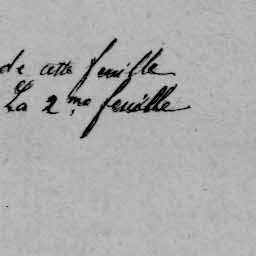 de cette feuille
La 2me feuille